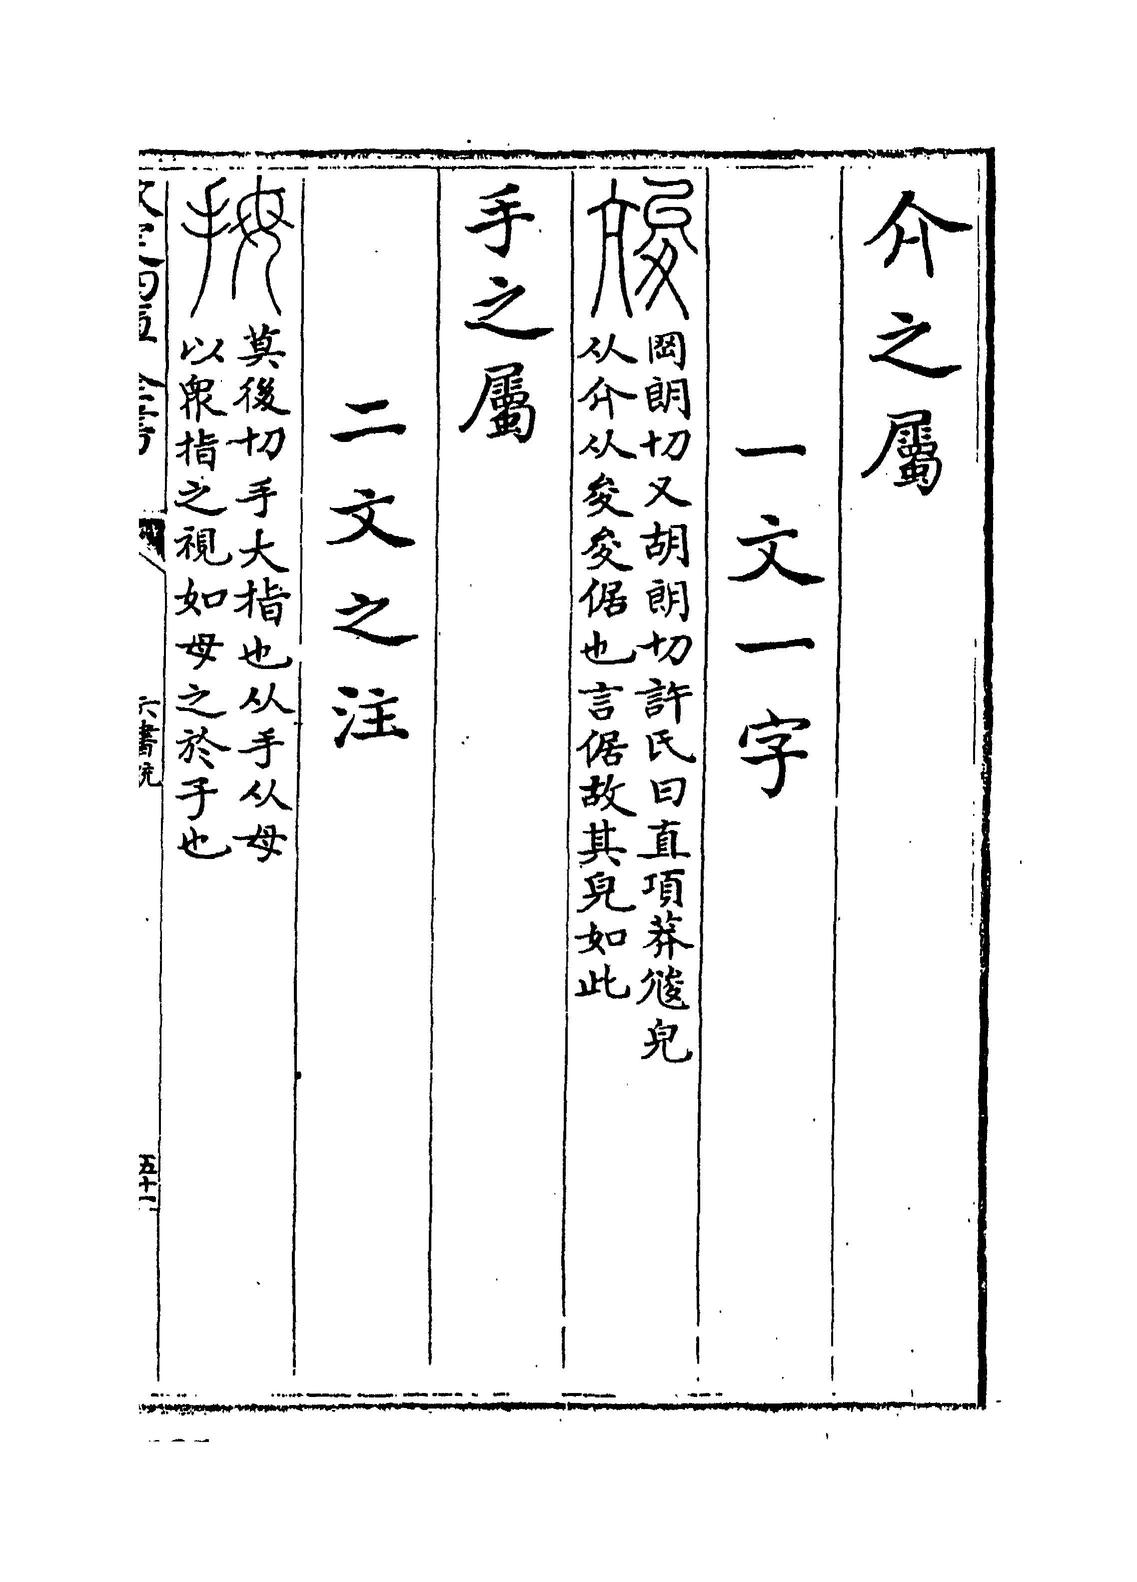 介之屬
一文一字
岡朗切又胡朗切許氏曰直項莽皃
从介从夋夋倨也言倨故其皃如此
手之屬
二文之注
拇
莫後切手大指也从手从母
以衆指之視如母之於手也
欽定四庫全書
六書統
五十一